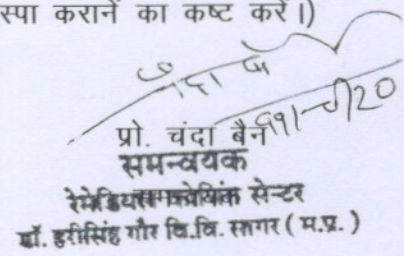 स्पा करानें का कष्ट करें।)
प्रो. चंदा बैन
समन्वयक
रेमेडियल सेन्टर
डॉ. हरीसिंह गौर वि.वि. सागर ( म.प्र. )